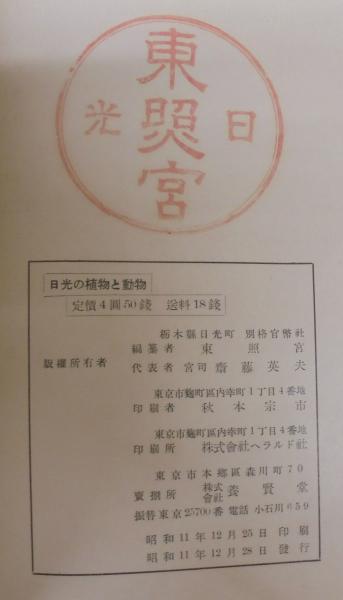 東照宮
日光
日光の植物と動物
定價4圓50錢 送料18錢
栃木縣日光町 別格官幣社
編纂者 東照宮
版權所有者 代表者 宮司 齋藤英夫
東京市麴町區內幸町1丁目4番地
印刷者 秋本宗市
東京市麴町區內幸町1丁目4番地
印刷所 株式會社ヘラルド社
東京市本鄕區森川町70
賣捌所 株式會社 養賢堂
振替東京25700番 電話 小石川659
昭和11年12月25日 印刷
昭和11年12月28日 發行